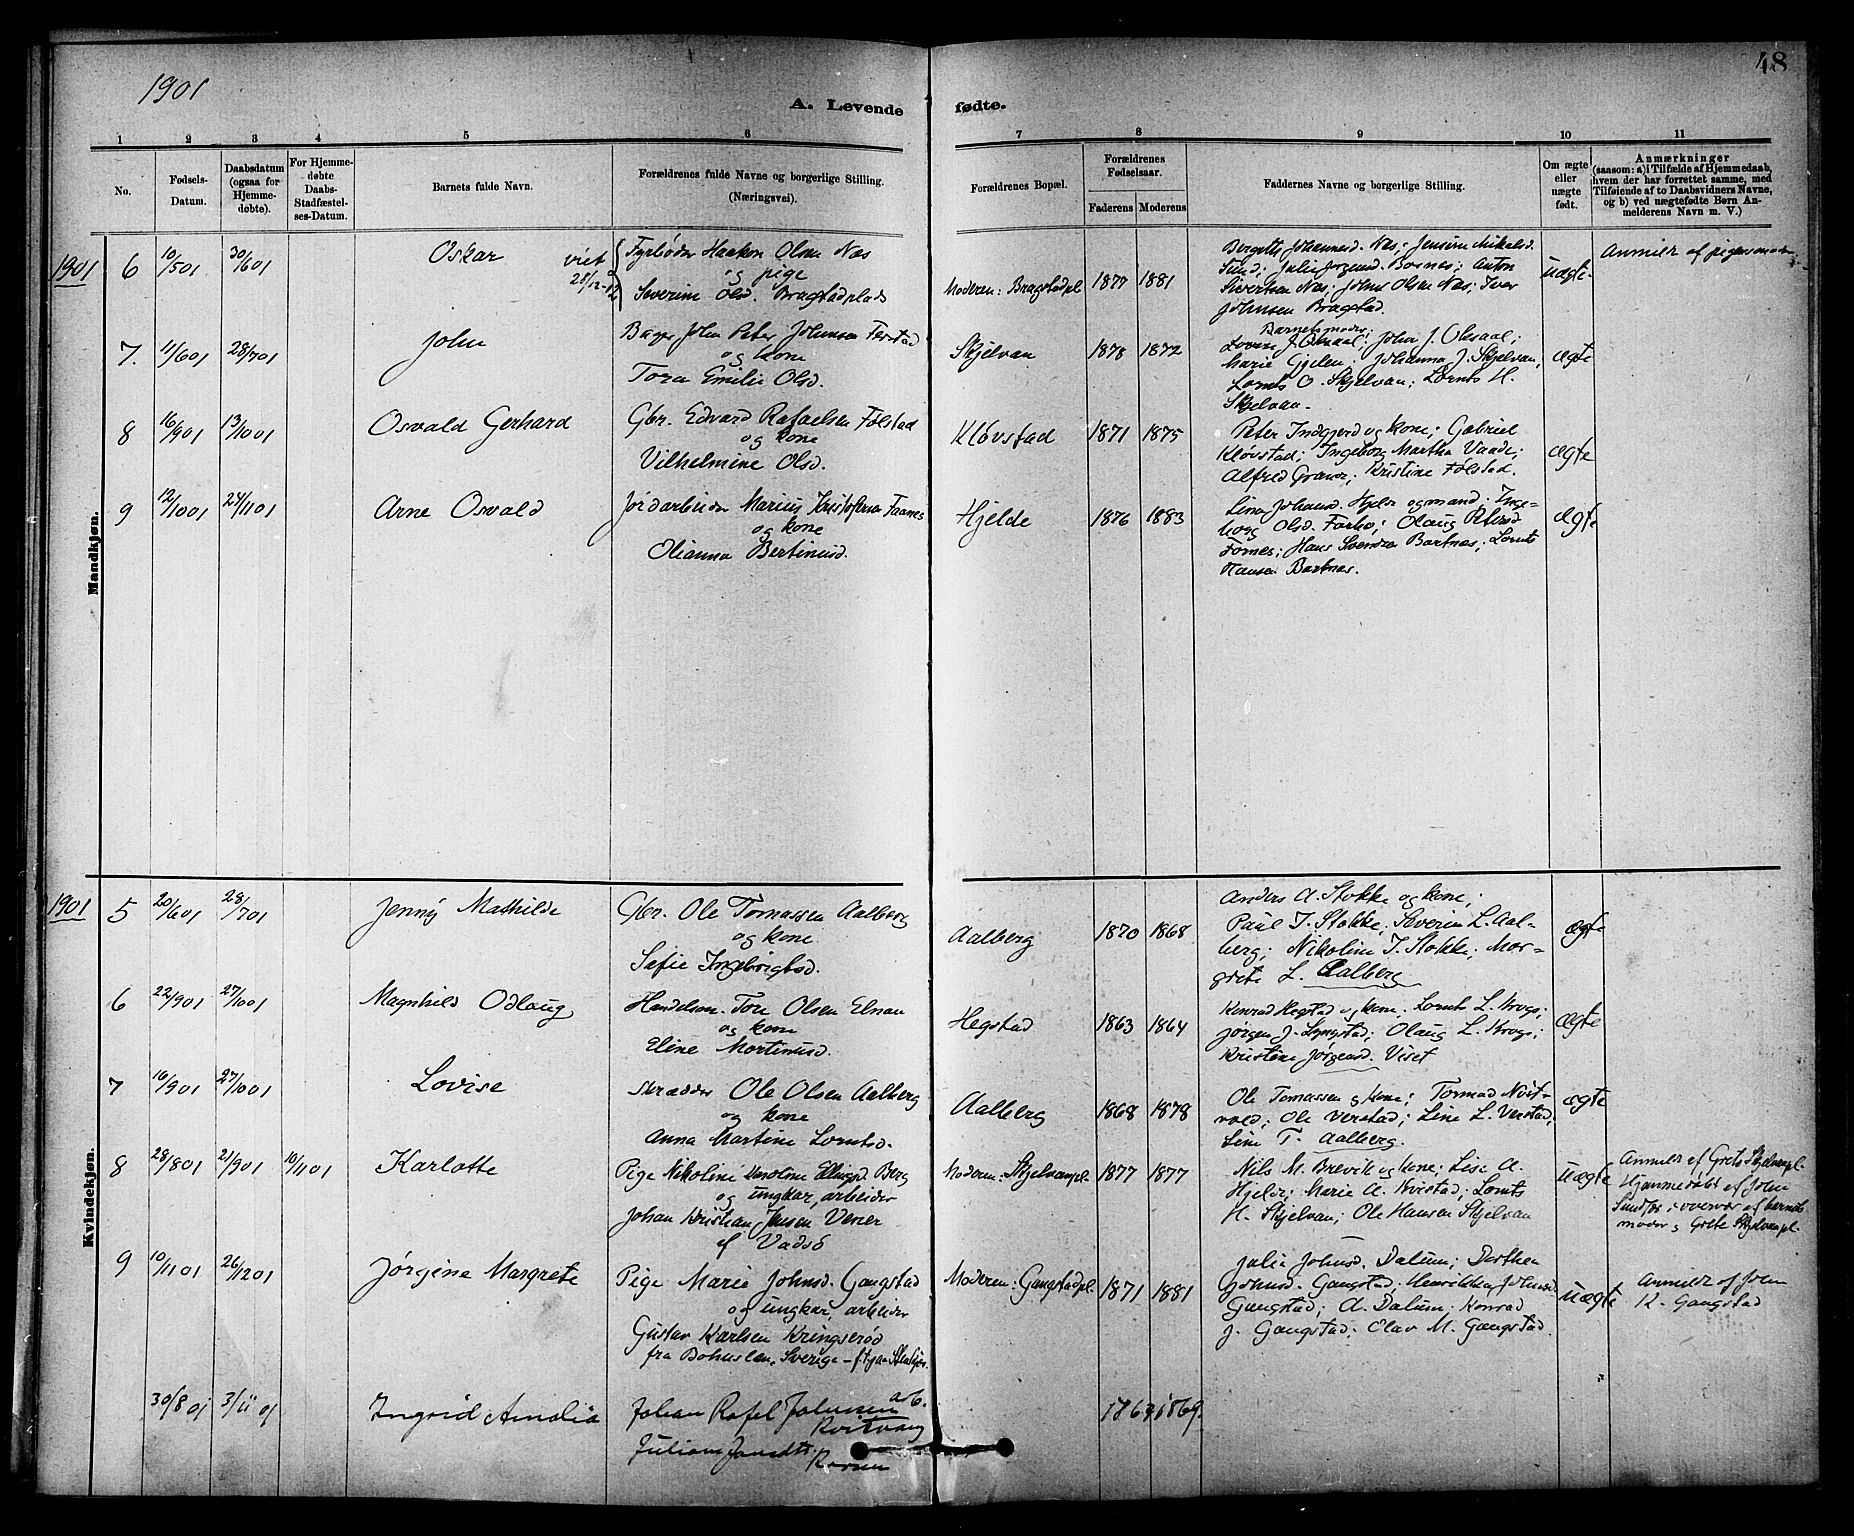 1901
48
A. Levende fødte.
1 2 3 4 5 6 7 8 9 10 11
No.
Fødsels-
Datum.
Daabsdatum
(ogsaa for
Hjemme-
døbte).
For Hjemme-
døbte
Daabs-
Stadfæstel-
ses-Datum.
Barnets fulde Navn.
Forældrenes fulde Navne og borgerlige Stilling.
(Næringsvei).
Forældrenes Bopæl.
Forældrenes
Fødselsaar.
Faderens Moderens
Faddernes Navne og borgerlige Stilling.
Om ægte
eller
uægte
født.
Anmærkninger
(saasom: a) i Tilfælde af Hjemmedaab,
hvem der har forrettet samme, med
Tilføiende af to Daabsvidners Navne,
og b) ved uægtefødte Børn An-
melderens Navn m. V.)
Mandkjøn.
1901
6 10/501 30/601
Oskar
viet
28/12-
Fyrbøder Haakon Olsen Næs
og pige
Severine Olsd. Bragstadplads
Moderen: Bragstadpl. 1877 1881
Bergitte Johannesd. Næs; Jensine Mikalsd.
Sund; Julie Jørgensd. Bornes; Anton
Sivertsen Næs; Johns Olsen Næs; Iver
Johnsen Bragstad.
uægte
Anmler af pigens moder
7. 11/601 28/701
John
Bager John Peter Johnsen
og kone
Tora Emilie Olsd.
Skjelvan 1878 1872
Barnets moder;
Lovise J. Oksaal; John J. Oksaal;
Marie Gjelen; Johanna J. Skjelvan,
Lornts O. Skjelvan; Lornts H.
Skjelvan.
ægte
8 16/901 13/1001
Osvald Gerhard
Gbr. Edvard Rafaelsen Følstad
og kone
Vilhelmine Olsd.
Kløvstad 1871 1875
Peter Indgjerd og kone; Gabriel
Kløvstad; Ingeborg Martha Vaade;
Alfred Granør; Kristine Følstad.
ægte
9 12/1001 24/1101
Arne Osvald
Jordarbeider Marius Kristofersen Faanes
og kone
Olianna Bertinusd.
Hjelde 1876 1883
Lina Johansd. Hjelde og mand; Inge-
borg Olsd. Farbo; Olaug Petersd
Fornes; Hans Svendsen Bartnes; Lornts
Hansen Bartnes.
ægte
Kvindekjøn.
1901
5 20/601 28/701
Jenny Mathilde
Gbr. Ole Tomassen Aalberg
og kone
Sofie Ingebrigtsd.
Aalberg 1870 1868
Anders A. Stokke og kone;
Paul J. Stokke; Severin L. Aal-
berg; Nikoline J. Stokke; Mar-
grete L. Aalberg
ægte
6 22/901 27/1001
Magnhild Odlaug
Handelsm. Tore Olsen Elnan
og kone
Eline Mortinusd.
Hegstad 1863 1864
Konrad Hegstad og kone. Lornts L. Krogs;
Jørgen J. Lyngstad; Olaug L. Krogs;
Kristine Jørgensd. Viset
ægte
7 16/901 27/1001
Lovise
Skrædder Ole Olsen Aalberg
og kone
Anna Martine Lorntsd.
Aalberg 1868 1878
Ole Tomassen og kone; Tormod Kvist-
vold; Ole Verstad; Line L. Verstad,
Line T. Aalberg.
ægte
8 28/801 21/901 10/1101
Karlotte
Pige Nikoline Karoline Ellingsd Berg
og ungkar, arbeider
Johan Kristian Jensen Vener
af Vadsö
Moderen: Skjelvanpl. 1877 1877
Nils M. Brevik og kone; Lise A.
Hjelde; Marie A. Kvistad; Lornts
H. Skjelvan; Ole Hansen Skjelvan
uægte
Anmler af Grete Skjelvanpl.
Hjemmedøbt af John
Sundfær i overvær af barnets
moder og Grete Skjelvanpl.
9 10/1101 26/1201
Jørgine Margrete
Pige Marie Johnsd. Gangstad
og ungkar, arbeider
Gustav Karlsen Kringserød
fra Bohuslen, Sverige - f.t. paa Stenkjær.
Moderen: Gangstadpl. 1871 1881
Julie Johnsd. Dalum; Dorthea
Johnsd. Gangstad; Henrikke Johnsd
Gangstad; A. Dalum; Konrad
J. Gangstad; Olav M. Gangstad.
uægte
Anmler af John
K. Gangstad
30/8 01 3/11 01
Ingrid Amalia
Johan Rafel Johnsen arb.
Kvitvang
Juliane
1869.